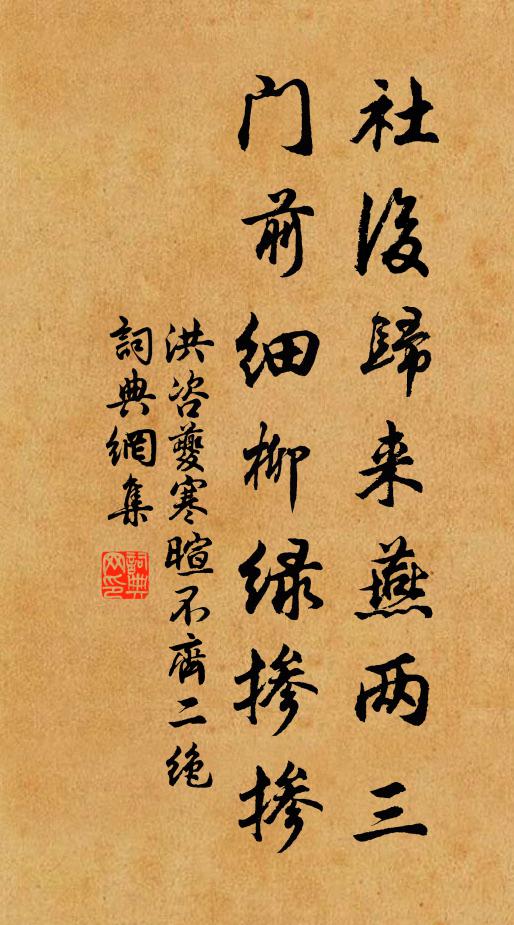 社後歸来燕两三
门前细柳绿掺掺
洪咨夔寒暄不齊二绝
詞典網集
詞典
网印